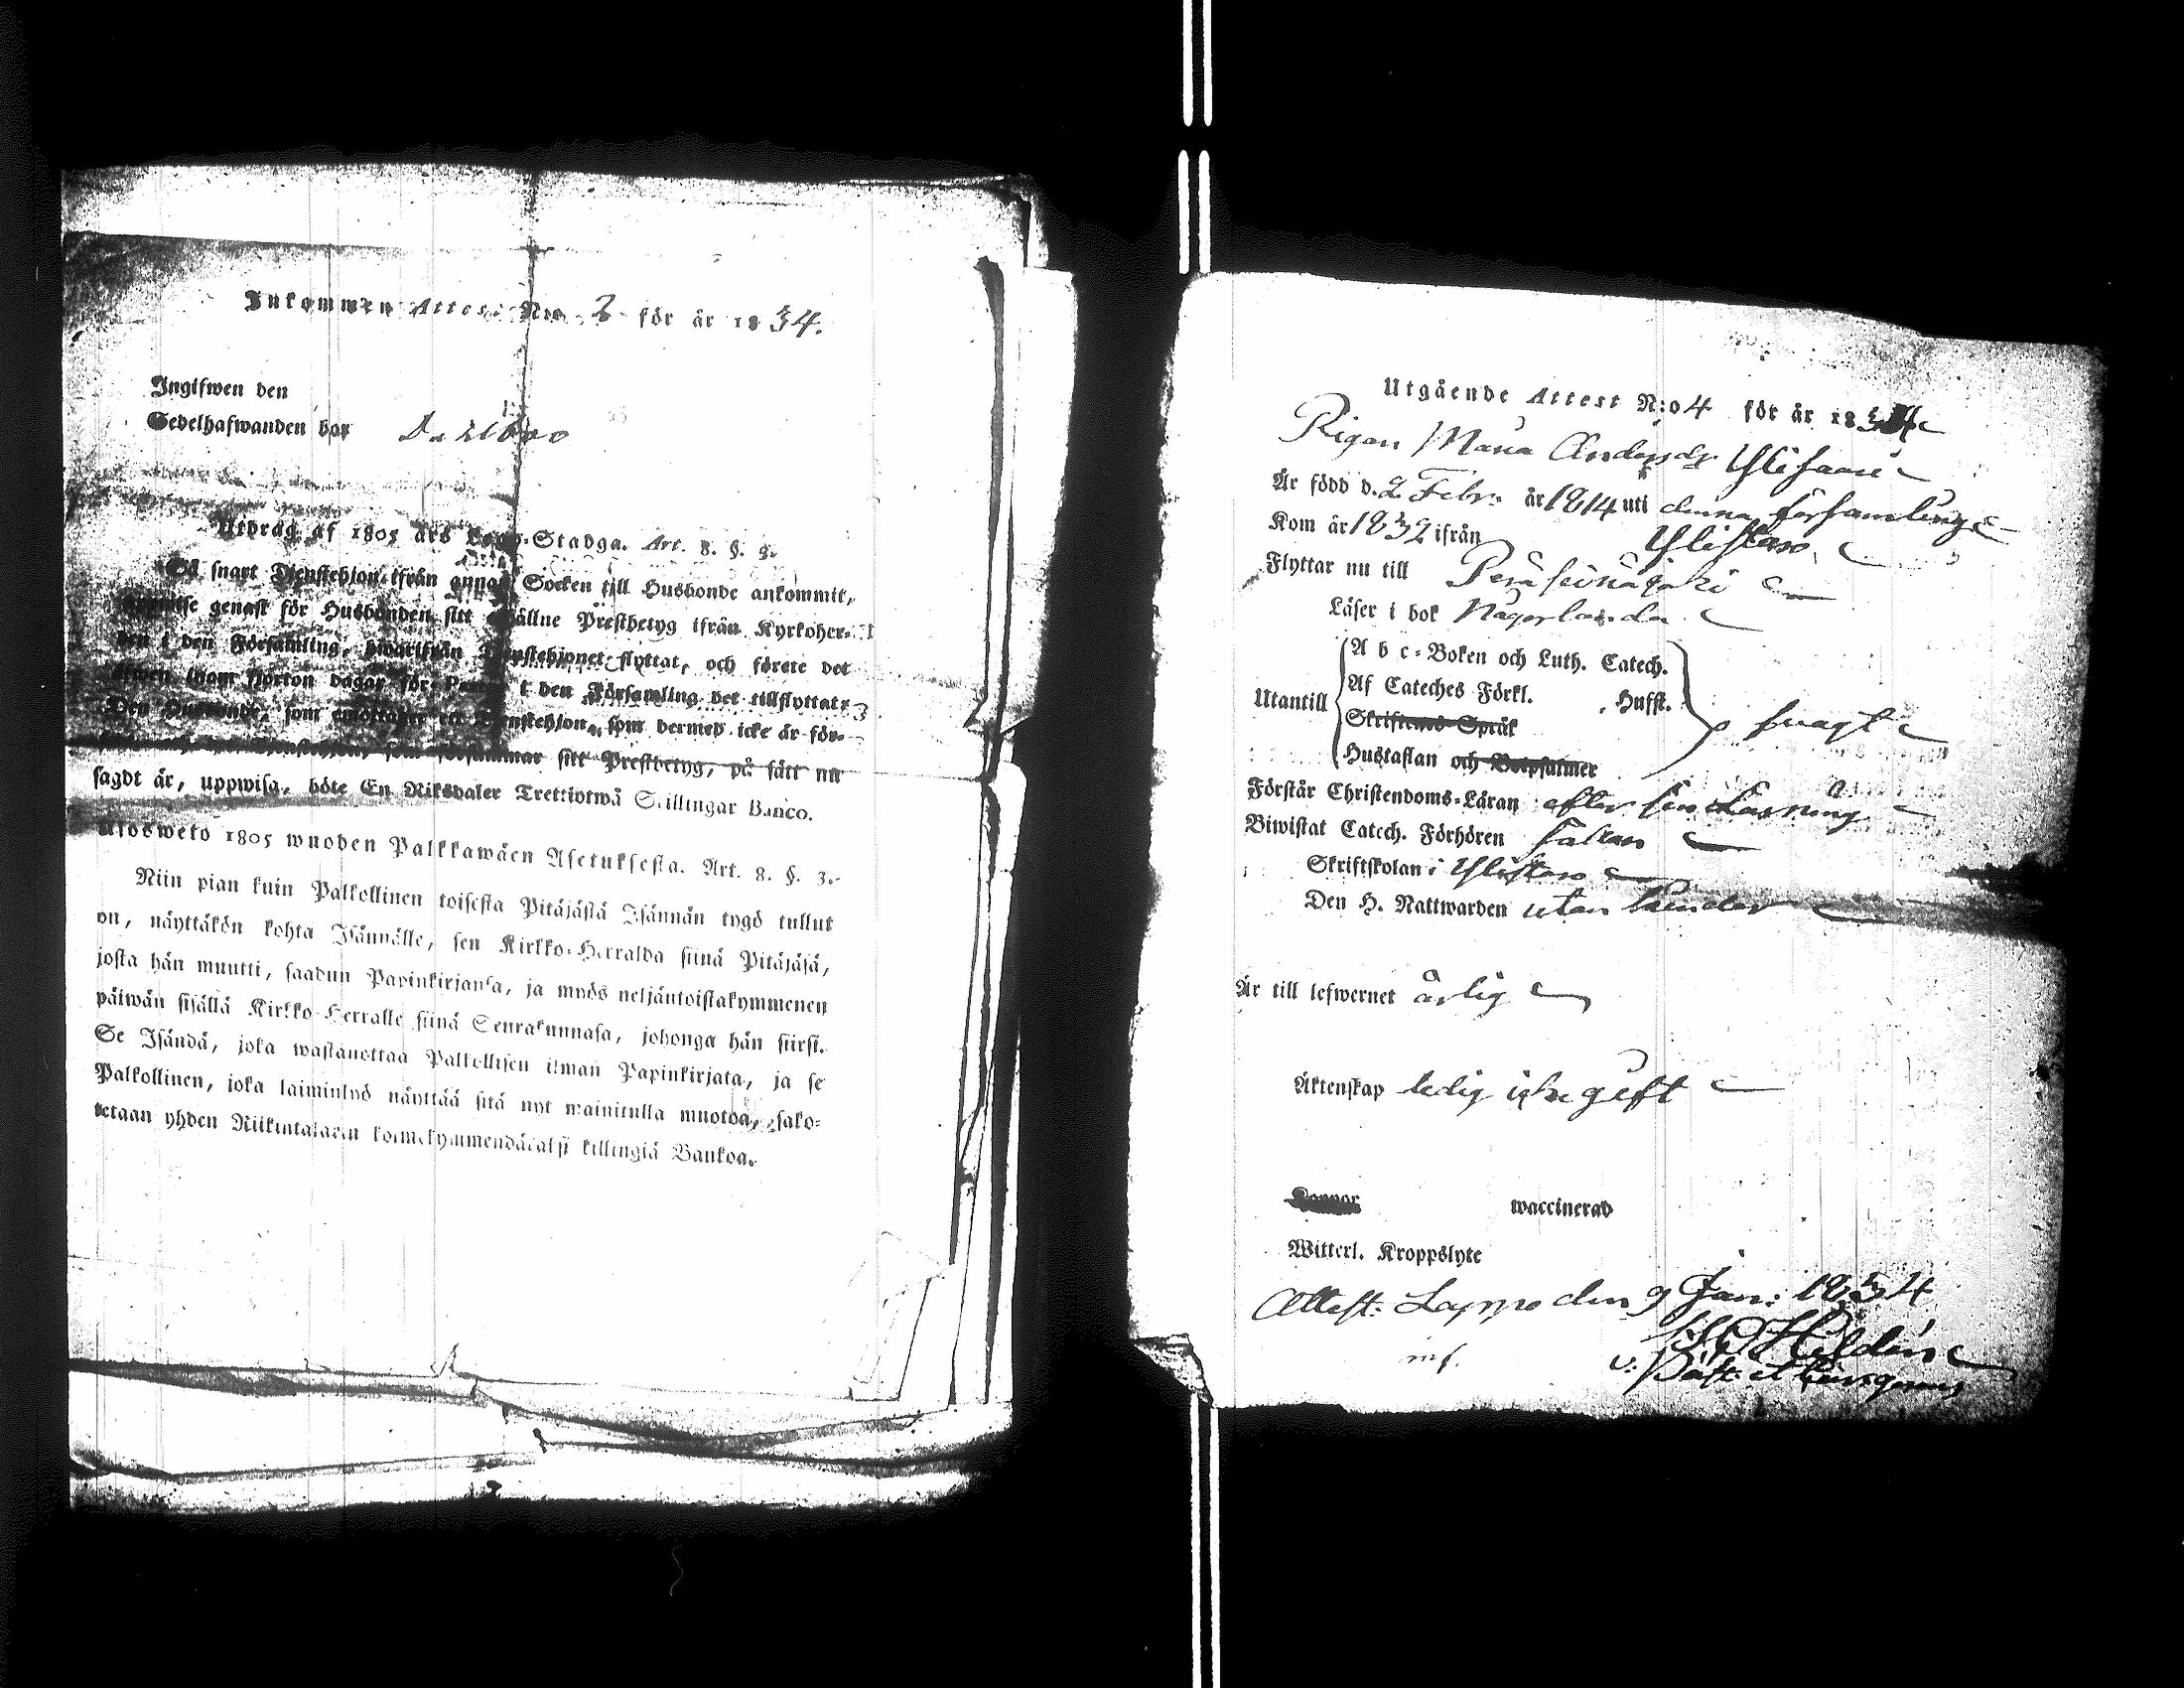 Inkommen Attest N:o 2 för år 1834.
Ingifwen den
Sedelhafwanden bor
Utdrag af 1805 års Lego-Stadga. Art. 8. §. 3.
Så snart Tjenstehjon ifrån annan Socken till Husbonde ankommit,
uppwise genast för Husbonden sitt Prestbetyg ifrån Kyrkoher-
den i den Församling, hwarifrån Tjenstehjonet flyttat, och förete det
äfwen inom fjorton dagar för i den Församling det tillflyttat:
Den Husbonde, som emottager ett Tjenstehjon, som dermed icke är för-
som försummar sitt Prestbetyg, på sätt nu
sagdt är, uppwisa, böte En Riksdaler Trettiotwå Skillingar Banco.
Ulosweto 1805 wuoden Palkkawäen Asetuksesta. Art. 8. §. 3.
Niin pian kuin Palkollinen toisesta Pitäjästä Isännän tygö tullut
on, näyttäkön kohta Isännälle, sen Kirkko-Herralda siinä Pitäjäsä,
josta hän muutti, saadun Papinkirjansa, ja myös neljäntoistakymmenen
päiwän sisällä Kirkko-Herralle siinä Seurakunnasa, johonga hän siirsi.
Se Isändä, joka wastanottaa Palkollisen ilman Papinkirjata, ja se
Palkollinen, joka laiminlyö näyttää sitä nyt mainitulla muotoa, sako-
tetaan yhden Riikintalarin kolmekymmendäkaksi killingiä Bankoa.
Utgående Attest N:o 4 för år 1834
Pigan Maria Andersdr Ylisaari
Är född d. 2 Febr. år 1814 uti denna församling
Kom år 1832 ifrån Ylistaro
Flyttar nu till Peräseinäjoki
Läser i bok någorlunda
A b c-Boken och Luth. Catech.
Af Cateches Förkl. Hufst.
Utantill svagt
Skriftens Språk
Hustaflan och Botpsalmer
Förstår Christendoms-Läran efter sin Läsning
Biwistat Catech. Förhören sällan
Skriftskolan i Ylistaro
Den H. Nattwarden utan hinder
Är till lefwernet ärlig
Äktenskap ledig icke gift
Koppor waccinerad
Witterl. Kroppslyte
Attest: Lappo den 9 Jan: 1834
Hildén
v: Past: